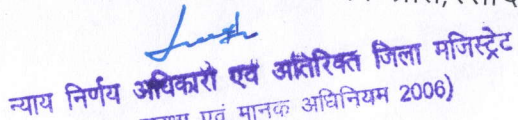 न्याय निर्णय अधिकारी एवं अतिरिक्त जिला मजिस्ट्रेट
एवं मानक अधिनियम 2006)